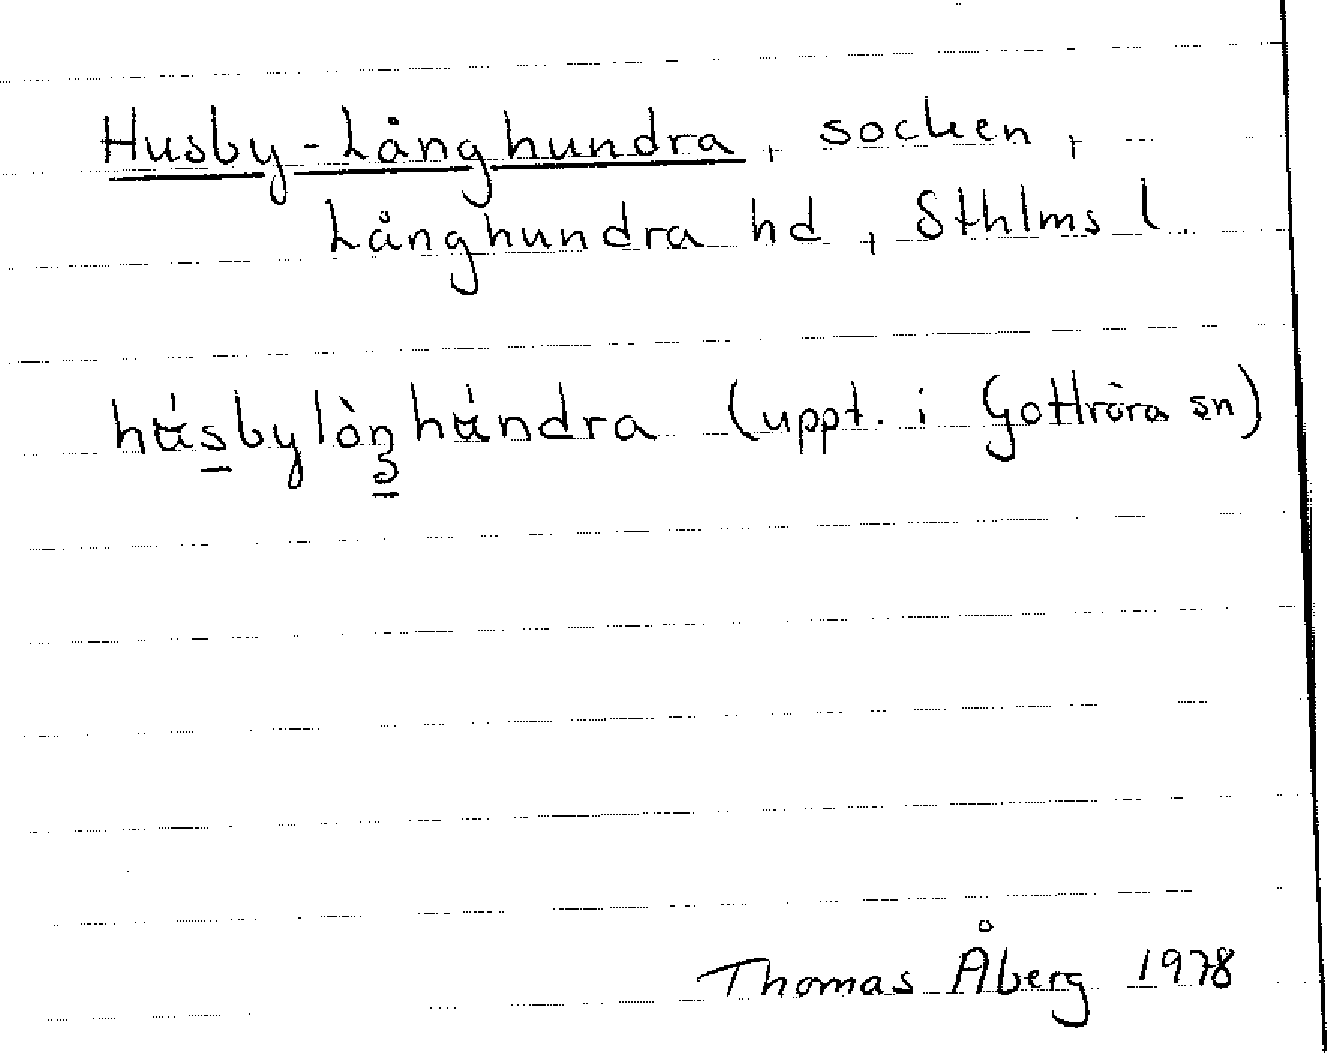 Husby-Långhundra, socken,
Långhundra hd, Sthlms l
hʉ́sbylòŋhʉ́ndra (uppt. i Gottröra sn)
Thomas Åberg 1978